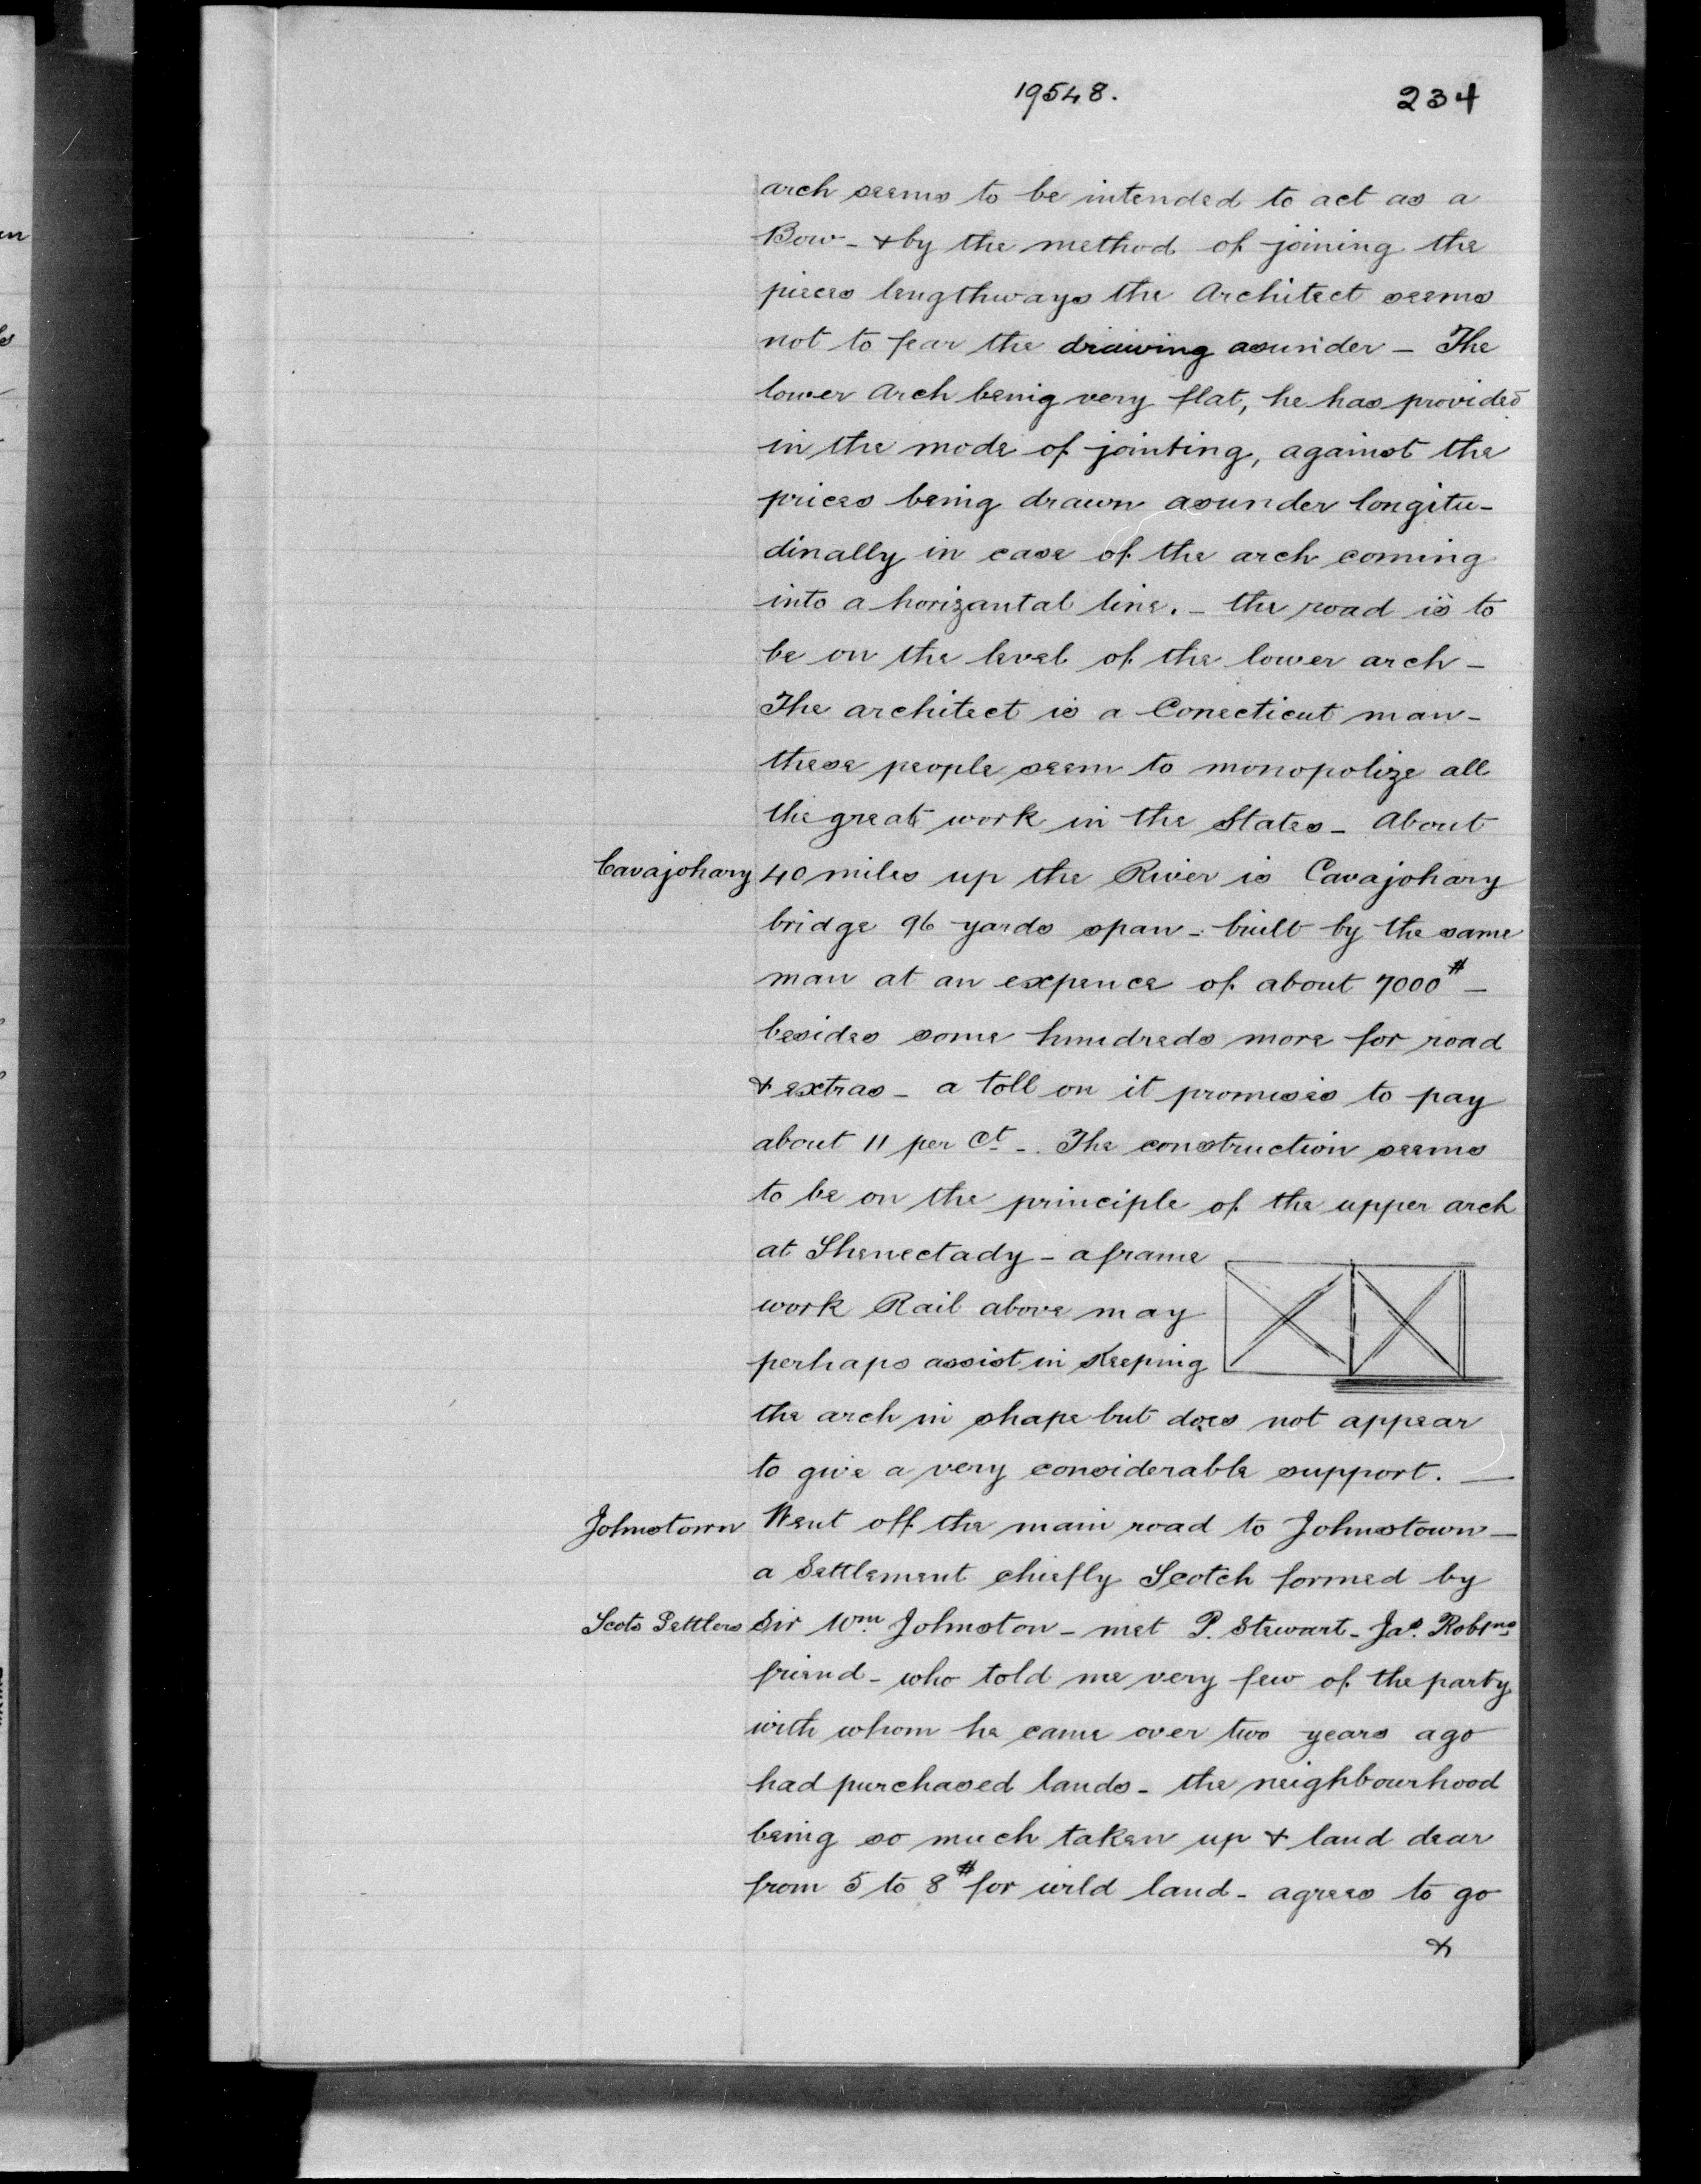 19548.
234
arch seems to be intended to act as a
Bow - & by the method of joining the
pieces lengthways the Architect seems
not to fear the drawing asunder - The
lower Arch being very flat, he has provided
in the mode of jointing, against the
prices being drawn asunder longitu-
dinally in case of the arch coming
into a horizantal line. - the road is to
be on the level of the lower arch -
The architect is a Conecticut man -
these people seem to monopolize all
the great work in the States - About
Cavajohary 40 miles up the River is Cavajohary
bridge 96 yards span - built by the same
man at an expence of about 7000 # -
besides some hundreds more for road
& extras - a toll on it promises to pay
about 11 per Ct. - The construction seems
to be on the principle of the upper arch
at Shenectady - a frame
work Rail above may
perhaps assist in keeping
the arch in shape but does not appear
to give a very considerable support. —
Johnstown Went off the main road to Johnstown -
a Settlement chiefly Scotch formed by
Scots Settlers Sir Wm. Johnston - met P. Stewart - Jas. Robtns
friend - who told me very few of the party
with whom he came over two years ago
had purchased lands - the neighbourhood
being so much taken up & land dear
from 5 to 8 # for wild land - agrees to go
&